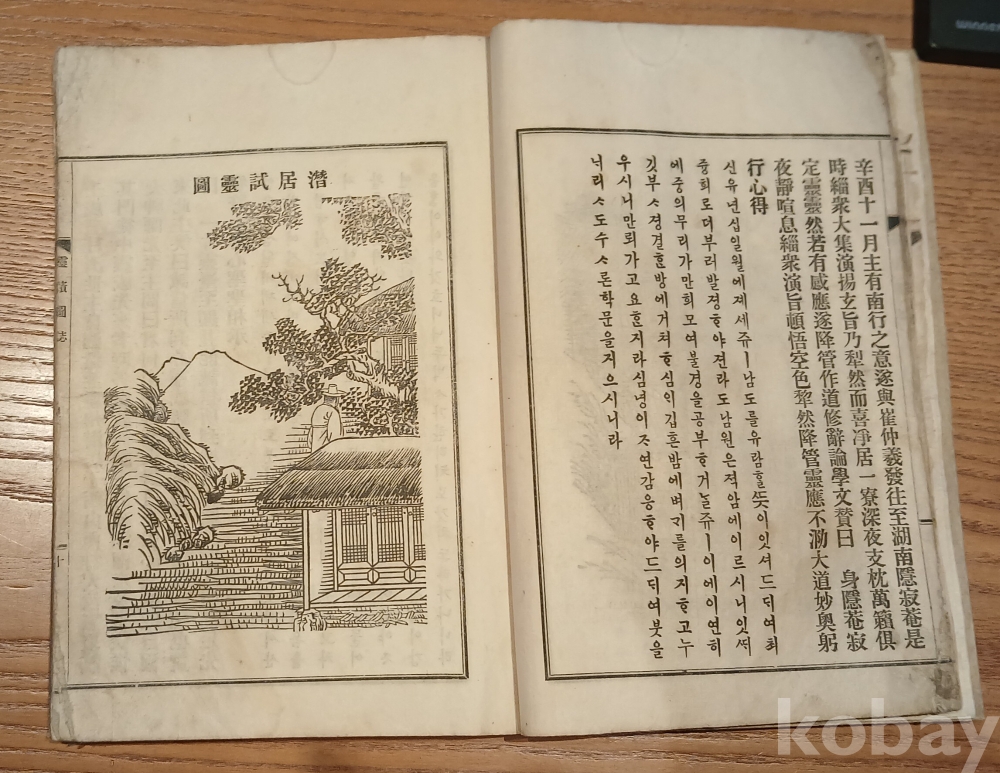 辛酉十一月主有南行之意遂與崔仲羲發往至湖南隱寂菴是
時緇衆大集演揚玄旨乃犁然而喜凈居一寮深夜支枕萬籟俱
定靈靈然若有感應遂降管作道修辭論學文贊曰 身隱菴寂
夜靜喧息緇衆演旨頓悟空色犂然降管靈應不泐大道妙奧躬
行心得
신유년십일월에제세쥬ㅣ남도를유람ᄒᆞᆯᄯᅳᆺ이잇셔드ᄃᆡ여최
중희로더부러발졍ᄒᆞ야젼라도남원은젹암에이르시니잇ᄯᅢ
에중의무리가만희모여불경을공부ᄒᆞ거ᄂᆞᆯ쥬ㅣ이에이연히
깃부ᄉᆞ졍결ᄒᆞᆫ방에거쳐ᄒᆞ심이깁흔밤에벼ᄀᆡ를의지ᄒᆞ고누
우시니만뢰가고요ᄒᆞᆫ지라심녕이ᄌᆞ연감응ᄒᆞ야드ᄃᆡ여붓을
ᄂᆡ리ᄉᆞ도수ᄉᆞ론학문을지으시니라
潛居試靈圖
靈蹟圖志
十
kobay